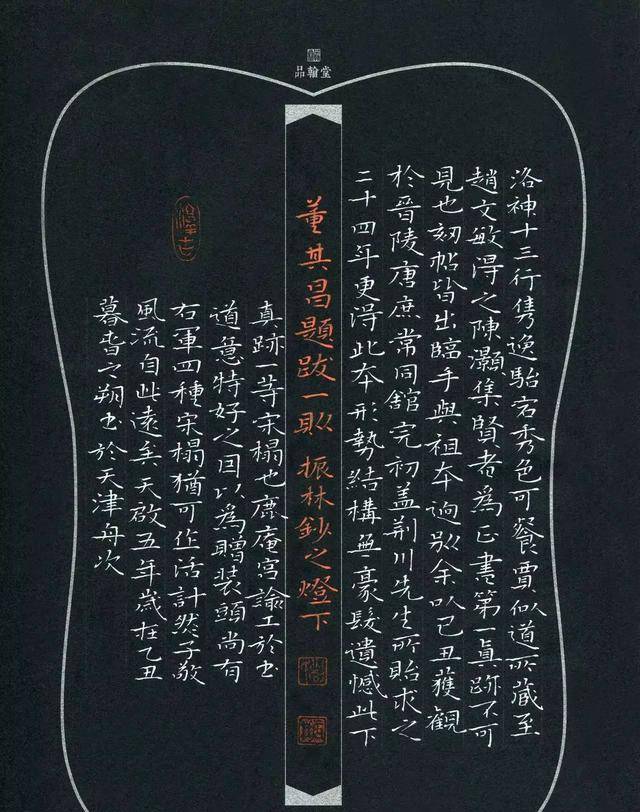 品翰堂
洛神十三行隽逸駘宕秀色可餐賈似道所藏至
趙文敏得之陳灝集賢者為正書第一真跡不可
見也刻帖皆出臨手與祖本逈別余以己丑獲觀
於晉陵唐庶常同館完初盖荆川先生所貽求之
二十四年更得此本形勢結構無豪髮遺憾此下
董其昌題跋一則 振林鈔之燈下
真跡一等宋榻也鹿庵宮諭工於书
道意特好之因以為贈装頭尚有
右軍四種宋榻猶可作活計然子敬
風流自此遠矣天啟五年歲在乙丑
暮春之朔书於天津舟次